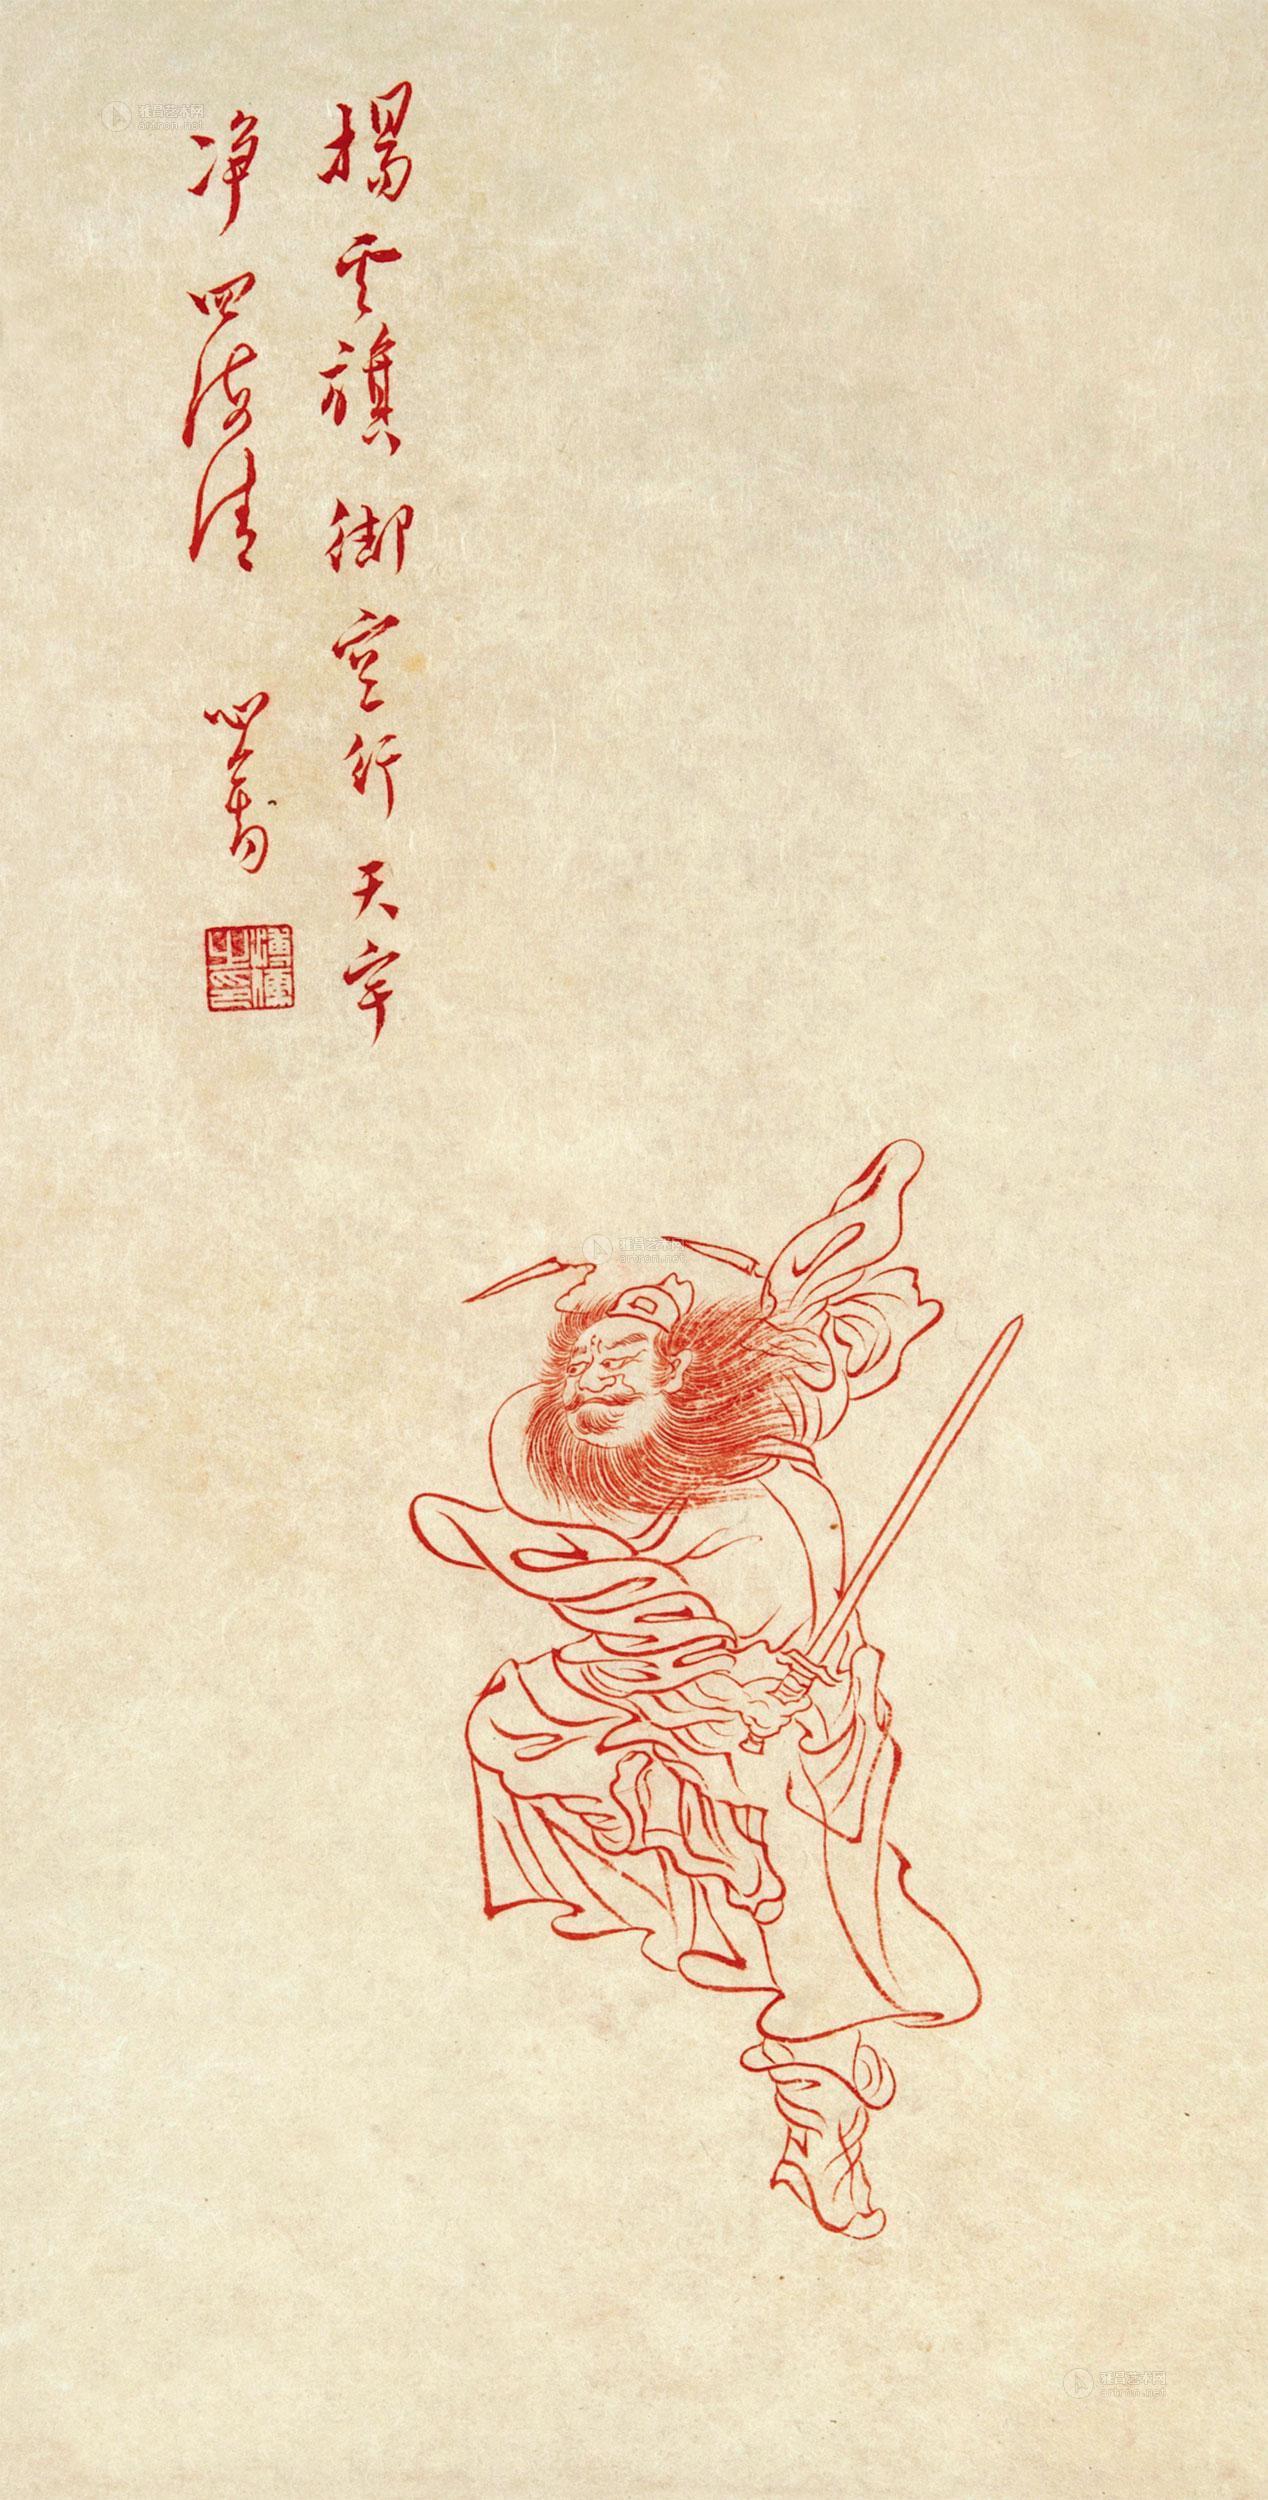 揚雲旗御空行天宇
净四海清
心畬
溥儒之印
雅昌艺术网
artron.net
雅昌艺术网
artron.net
雅昌艺术网
artron.net